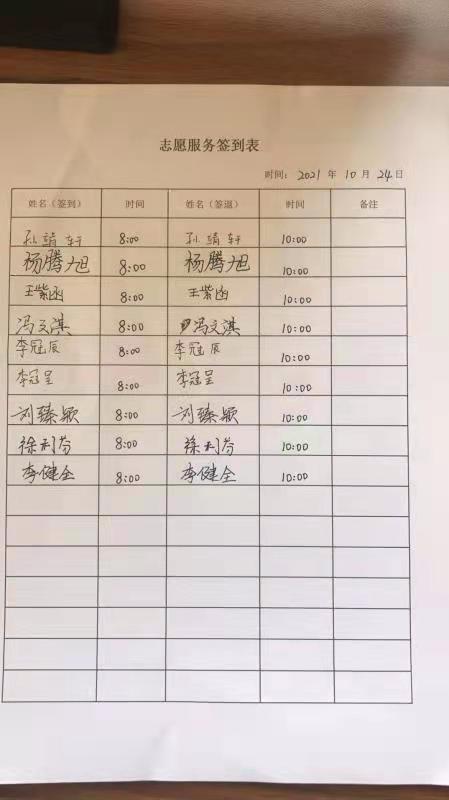 志愿服务签到表
时间： 2021 年 10 月 24 日
姓名（签到） 时间 姓名（签退） 时间 备注
孙靖轩 8:00 孙靖轩 10:00
杨腾旭 8:00 杨腾旭 10:00
王紫函 8:00 王紫函 10:00
冯文淇 8:00 冯文淇 10:00
李冠辰 8:00 李冠辰 10:00
李冠呈 8:00 李冠呈 10:00
刘臻颖 8:00 刘臻颖 10:00
徐利芬 8:00 徐利芬 10:00
李健全 8:00 李健全 10:00